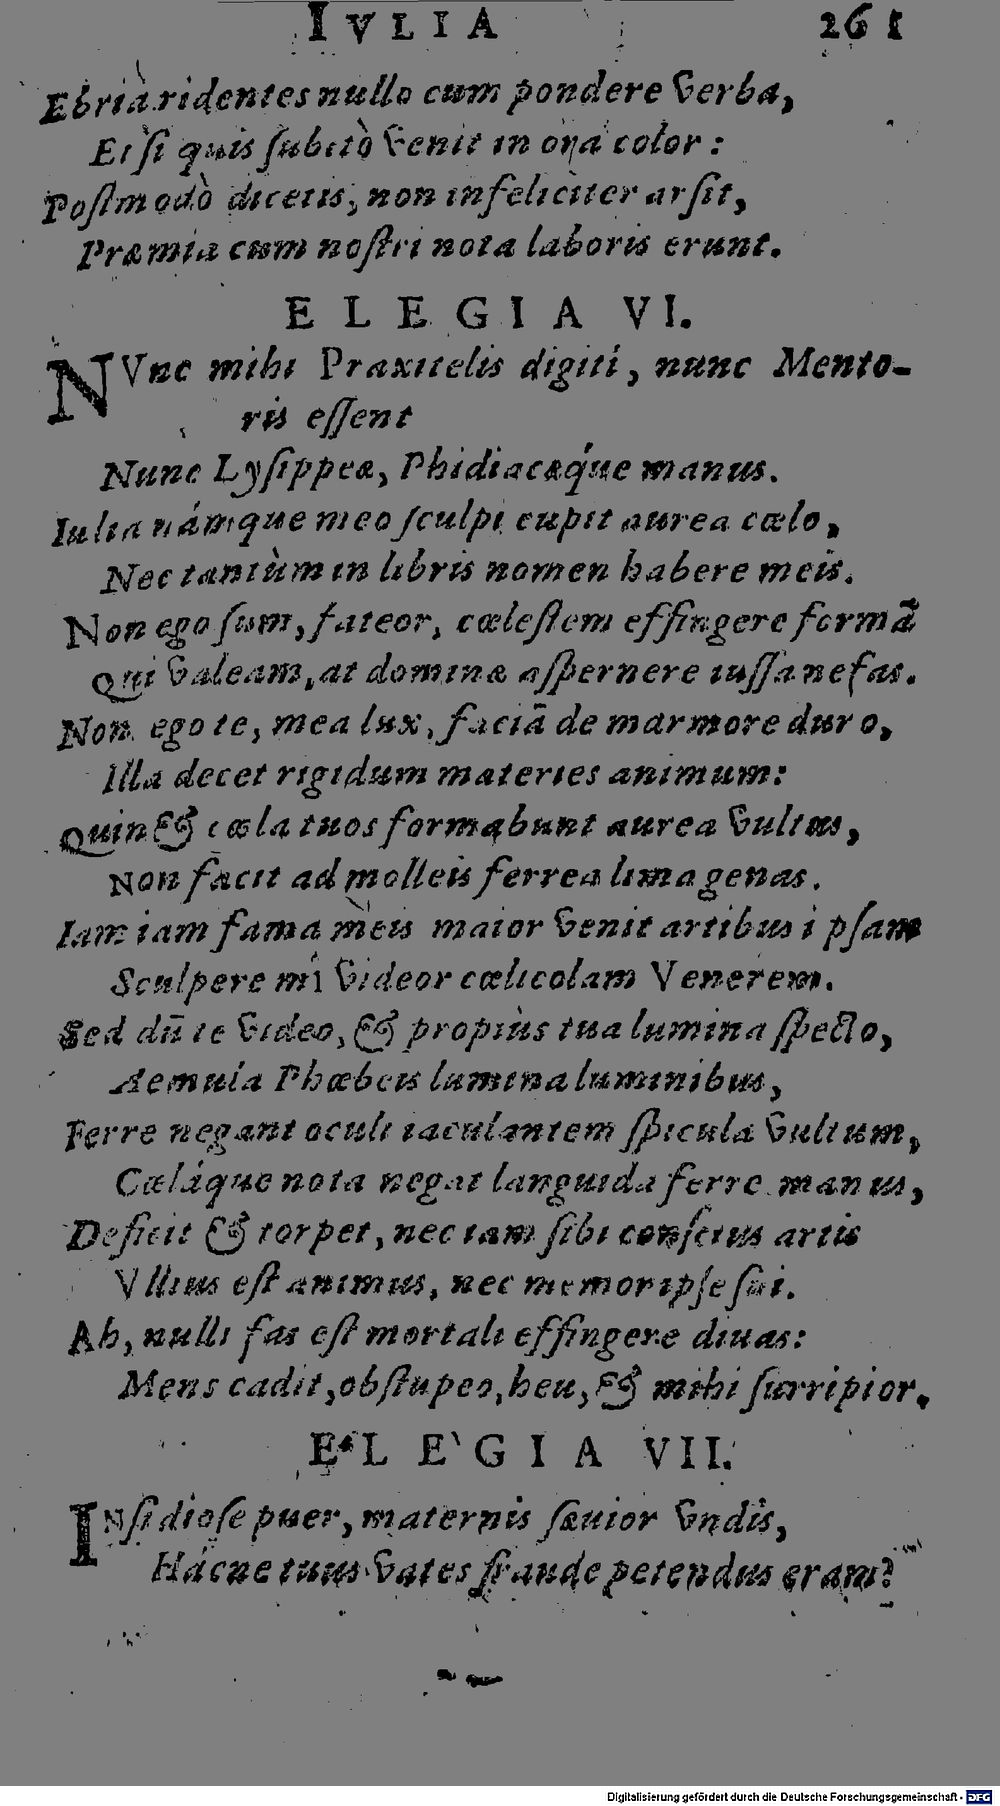 IVLIA 261
Ebria ridentes nullo cum pondere verba,
Et si quis subitò venit in ora color:
Postmodò dicetis, non infeliciter arsit,
Præmia cum nostri nota laboris erunt.
ELEGIA VI.
NVnc mihi Praxitelis digiti, nunc Mento-
ris essent
Nunc Lysippeæ, Phidiacæq́ue manus.
Iulia námque meo sculpi cupit aurea cælo,
Nec tantùm in libris nomen habere meis.
Non ego sum, fateor, cælestem effingere formã
Qui valeam, at dominæ aspernere iussa nefas.
Non ego te, mea lux, faciã de marmore duro,
Illa decet rigidum materies animum:
Quin & cæla tuos formabunt aurea vultus,
Non facit ad molleis ferrea lima genas.
Iam iam fama meis maior venit artibus ipsam
Sculpere mî videor cælicolam Venerem.
Sed dũ te video, & propiùs tua lumina specto,
Aemula Phœbeis lumina luminibus,
Ferre negant oculi iaculantem spicula vultum,
Cæláque nota negat languida ferre manus,
Deficit & torpet, nec iam sibi conscius artis
Vllius est animus, nec memor ipse sui.
Ah, nulli fas est mortali effingere diuas:
Mens cadit, obstupeo, heu, & mihi surripior.
ELEGIA VII.
INsidiose puer, maternis sæuior vndis,
Hácne tuus vates fraude petendus eram?
Digitalisierung gefördert durch die Deutsche Forschungsgemeinschaft - DFG